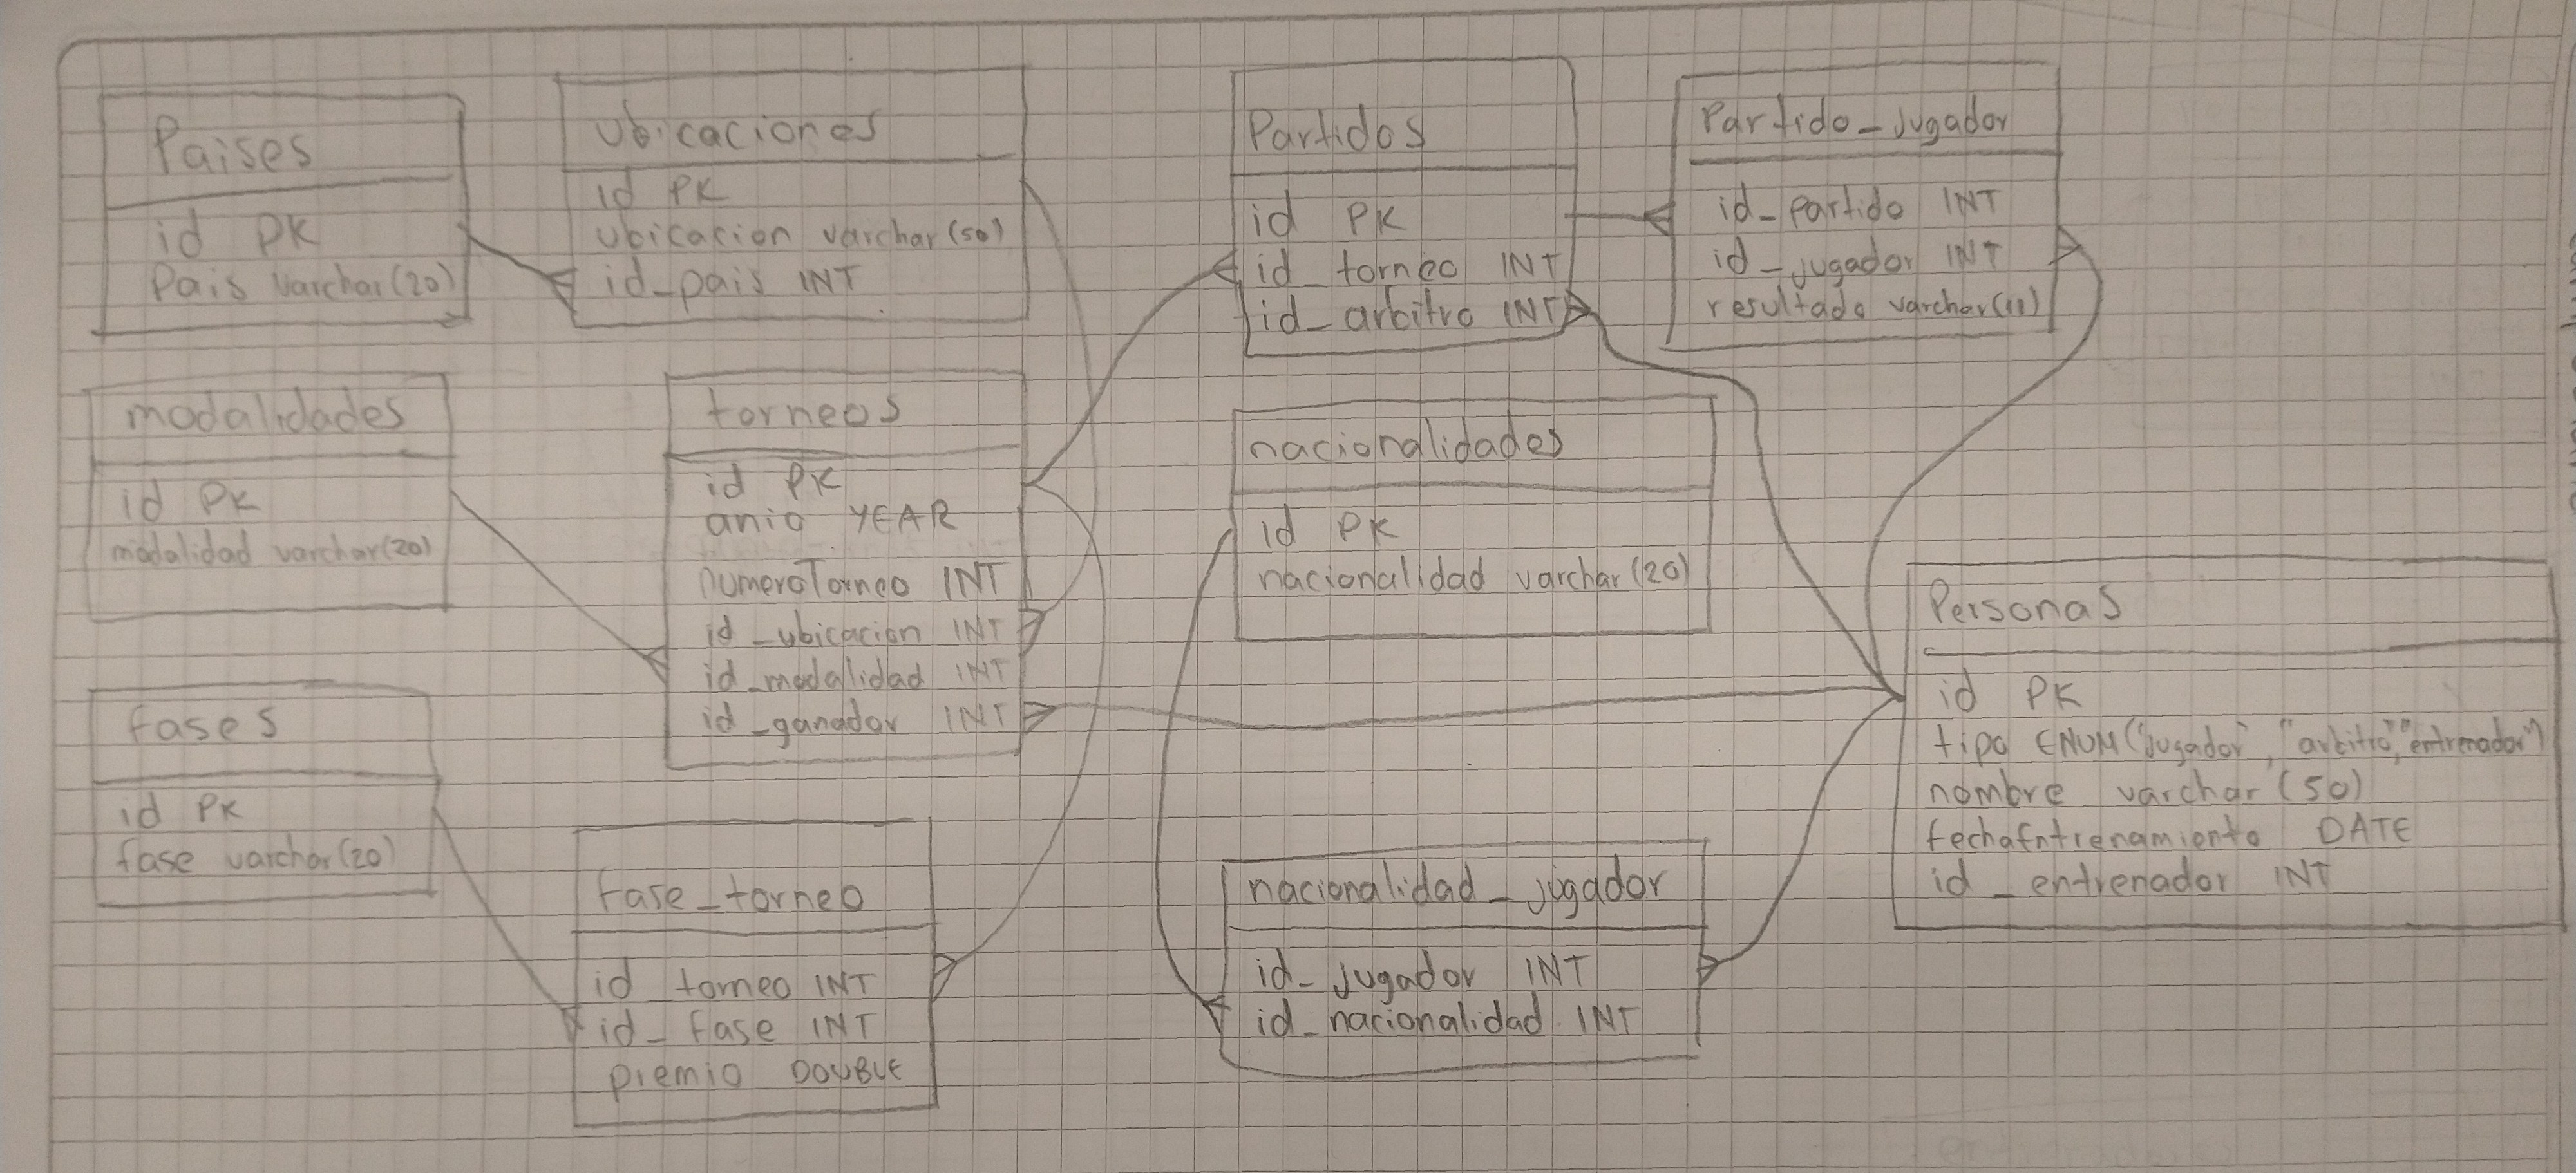 Paises
id PK
Pais varchar(20)
ubicaciones
id PK
ubicacion varchar(50)
id_pais INT
Partidos
id PK
id_torneo INT
id_arbitro INT
Partido_jugador
id_partido INT
id_jugador INT
resultado varchar(11)
modalidades
id PK
modalidad varchar(20)
torneos
id PK
anio YEAR
numeroTorneo INT
id_ubicacion INT
id_modalidad INT
id_ganador INT
nacionalidades
id PK
nacionalidad varchar(20)
Personas
id PK
tipo ENUM("jugador", "arbitro", "entrenador")
nombre varchar(50)
fechaEntrenamiento DATE
id_entrenador INT
fases
id PK
fase varchar(20)
fase_torneo
id_torneo INT
id_fase INT
premio DOUBLE
nacionalidad_jugador
id_jugador INT
id_nacionalidad INT